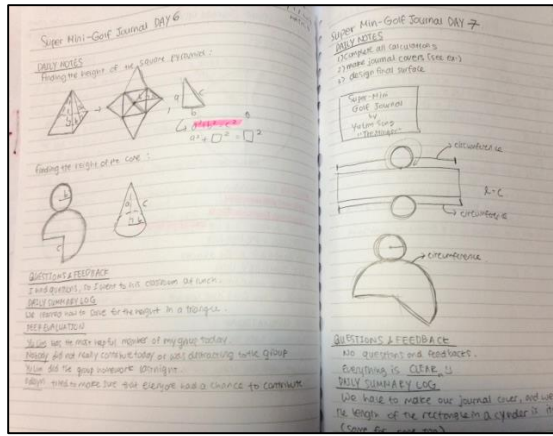 Super Mini-Golf Journal DAY 6
DAILY NOTES
Finding the height of the square pyramid:
a c
b
a² + □² = □²
Finding the height of the cone:
b
c
a c
b
QUESTIONS & FEEDBACK
I had questions, so I went to his classroom at lunch.
DAILY SUMMARY LOG
We learned how to solve for the height in a triangle.
PEER EVALUATION
was the most helpful member of my group today.
Nobody did not really contribute today or was distracting to the group
did the group homework last night.
tried to make sure that everyone had a chance to contribute
Super Min-Golf Journal DAY 7
DAILY NOTES
1) complete all calculations
2) make journal covers
3) design final surface
Super-Min
Golf Journal
circumference
l=c
circumference
circumference
QUESTIONS & FEEDBACK
No questions and feedbacks.
Everything is CLEAR
DAILY SUMMARY LOG
We have to make our journal cover, and we
the length of the rectangle in a cylinder is